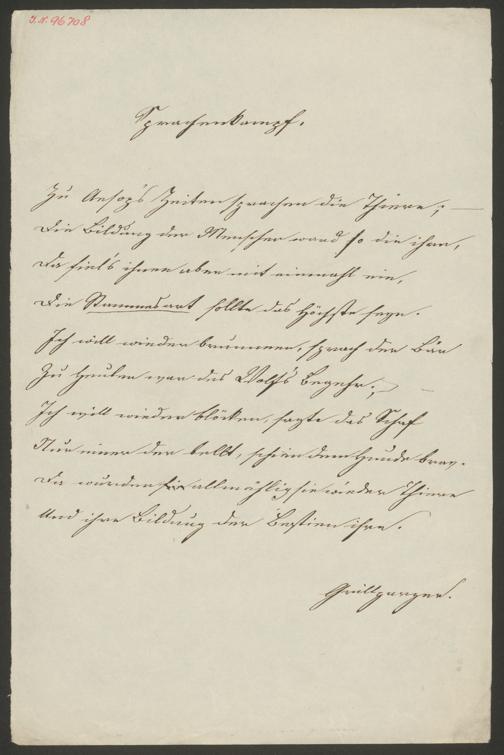 J.N. 96708
Sprachenkampf.
Zu Aesop's Zeiten sprachen die Thiere; —
Die Bildung der Menschen ward so die ihre,
Da fiel's ihnen aber mit einmahl ein,
Die Stammesart sollte das Höchste seyn.
Ich will wieder brummen, sprach der Bär
Zu heulen war des Wolfs Begehr; —
Ich will wieder blöcken, sagte das Schaf
Nur einer der bellt, schien dem Hunde brav.
Da wurden allmählig sie wieder Thiere
Und ihre Bildung der Bestien ihre.
Grillparzer.